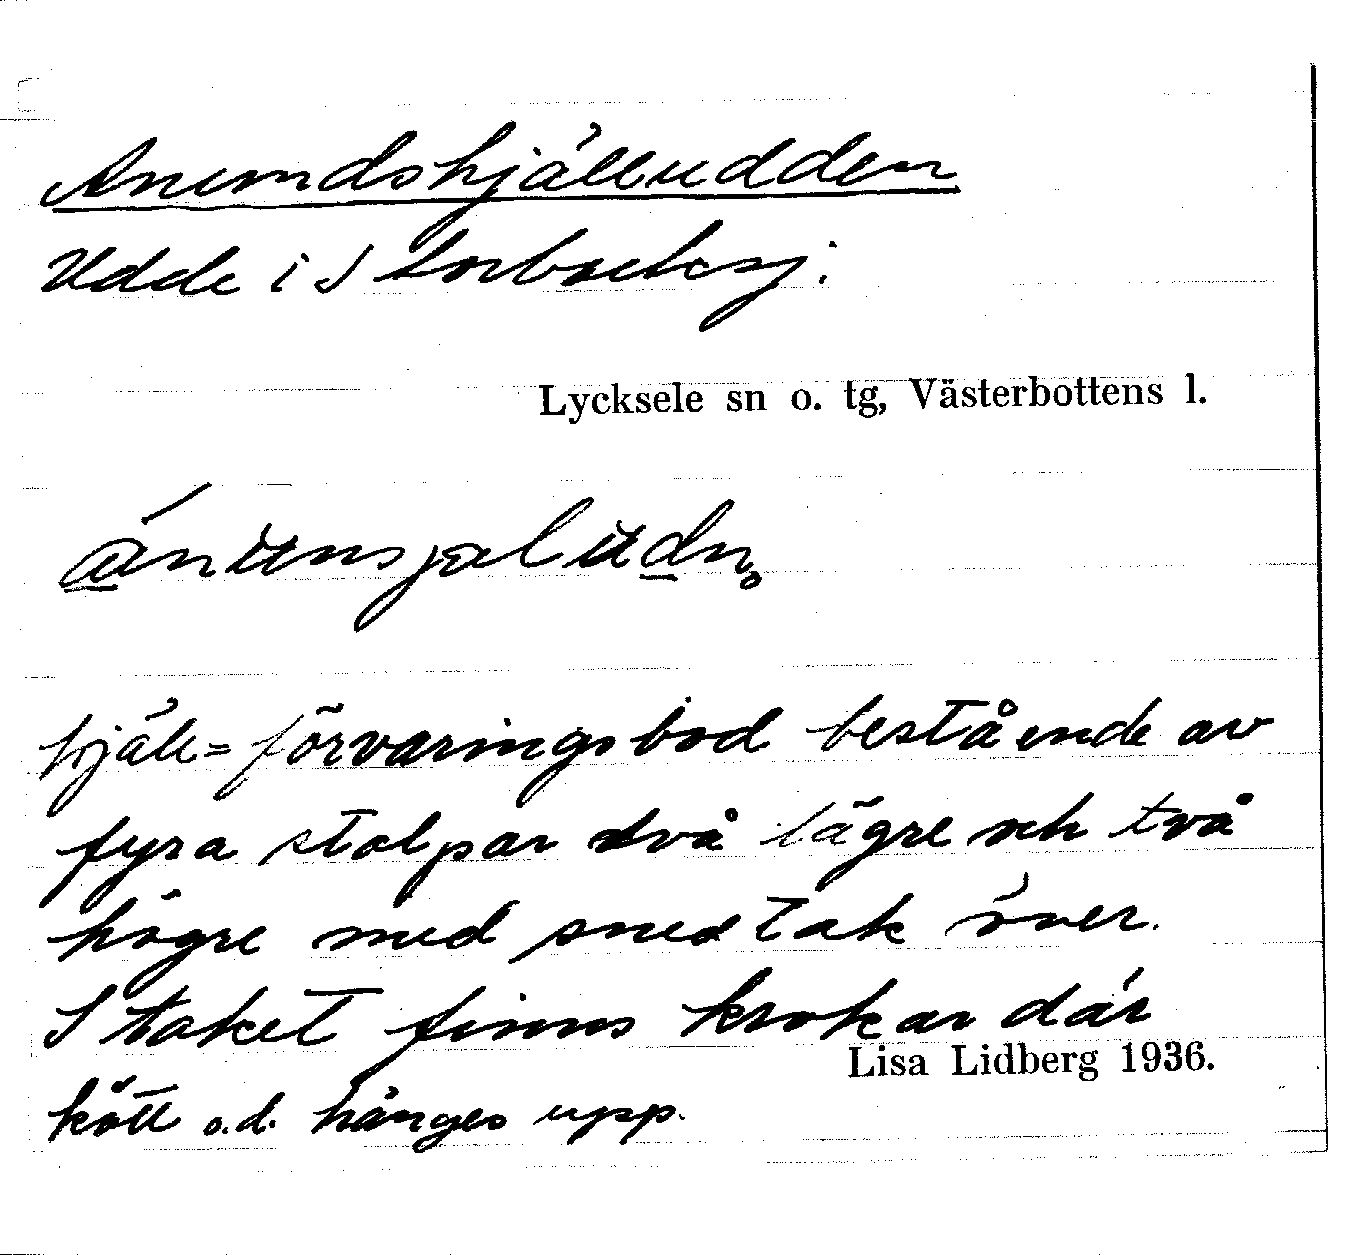 Anundshjälludden
Udde i Storbäcksj.
Lycksele sn o. tg, Västerbottens l.
hjäll = förvaringsbod bestående av
fyra stolpar två lägre och två
högre med snedtak över.
I taket finns krokar där
Lisa Lidberg 1936.
kött o.d. hänges upp.